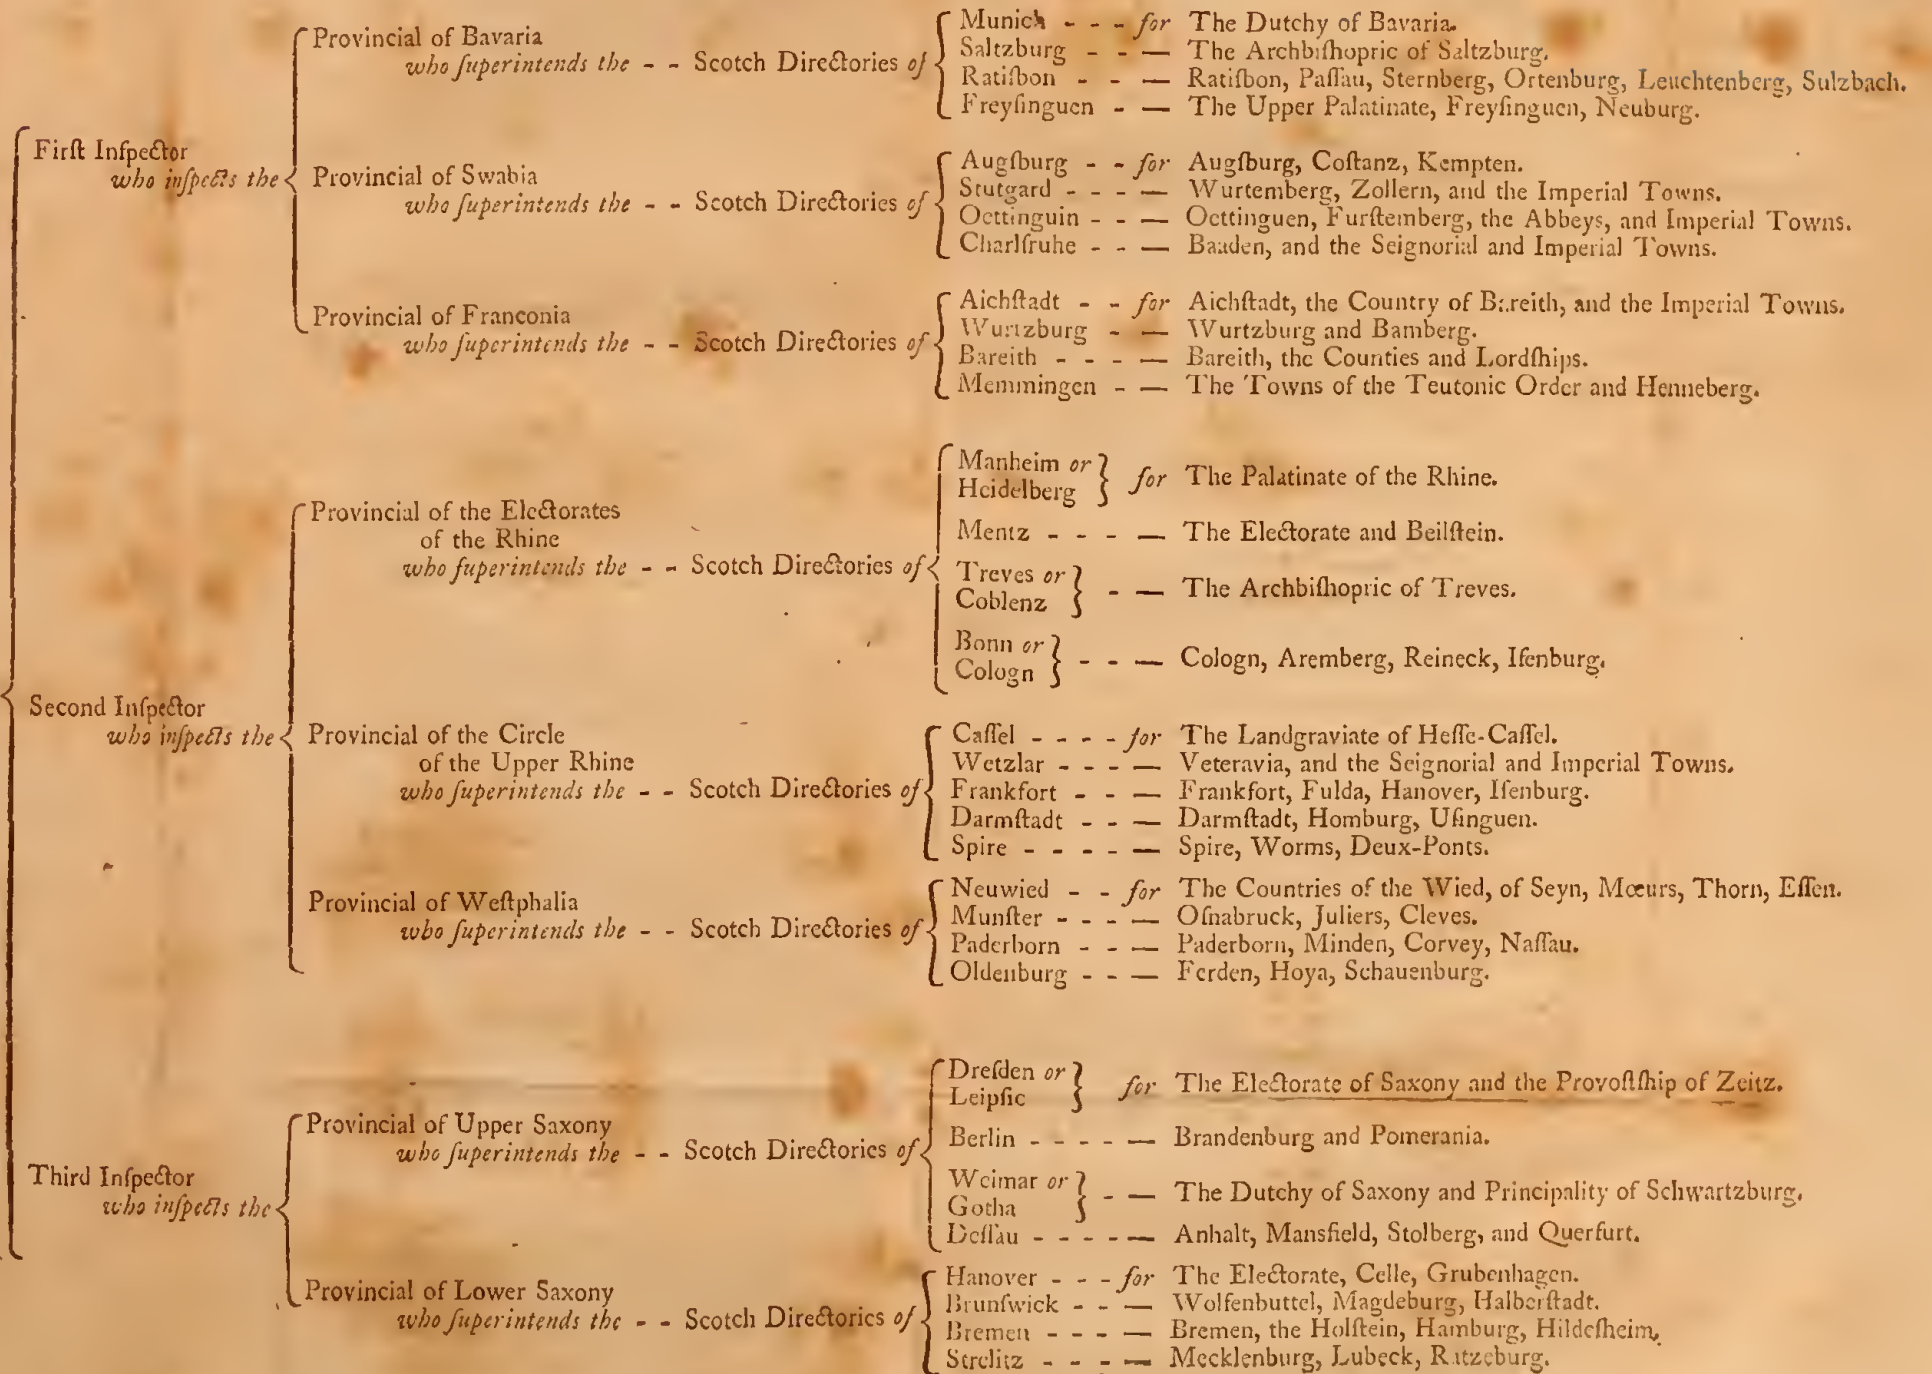 First Inſpector
who inſpects the
Provincial of Bavaria
who ſuperintends the - - Scotch Directories of
Munich - - - for The Dutchy of Bavaria.
Saltzburg - - — The Archbiſhopric of Saltzburg.
Ratiſbon - - — Ratiſbon, Paſſau, Sternberg, Ortenburg, Leuchtenberg, Sulzbach.
Freyſinguen - — The Upper Palatinate, Freyſinguen, Neuburg.
Provincial of Swabia
who ſuperintends the - - Scotch Directories of
Augſburg - - for Augſburg, Coſtanz, Kempten.
Stutgard - - - — Wurtemberg, Zollern, and the Imperial Towns.
Oettinguin - - — Oettinguen, Furſtemberg, the Abbeys, and Imperial Towns.
Charlſruhe - - — Baaden, and the Seignorial and Imperial Towns.
Provincial of Franconia
who ſuperintends the - - Scotch Directories of
Aichſtadt - - for Aichſtadt, the Country of Bareith, and the Imperial Towns.
Wurtzburg - — Wurtzburg and Bamberg.
Bareith - - - — Bareith, the Counties and Lordſhips.
Memmingen - — The Towns of the Teutonic Order and Henneberg.
Second Inſpector
who inſpects the
Provincial of the Electorates
of the Rhine
who ſuperintends the - - Scotch Directories of
Manheim or
Heidelberg } for The Palatinate of the Rhine.
Mentz - - - — The Electorate and Beilſtein.
Treves or
Coblenz } - — The Archbiſhopric of Treves.
Bonn or
Cologn } - - — Cologn, Aremberg, Reineck, Iſenburg.
Provincial of the Circle
of the Upper Rhine
who ſuperintends the - - Scotch Directories of
Caſſel - - - - for The Landgraviate of Heſſe-Caſſel.
Wetzlar - - - — Veteravia, and the Seignorial and Imperial Towns.
Frankfort - - — Frankfort, Fulda, Hanover, Iſenburg.
Darmſtadt - - — Darmſtadt, Homburg, Uſinguen.
Spire - - - - — Spire, Worms, Deux-Ponts.
Provincial of Weſtphalia
who ſuperintends the - - Scotch Directories of
Neuwied - - for The Countries of the Wied, of Seyn, Mœurs, Thorn, Eſſen.
Munſter - - - — Oſnabruck, Juliers, Cleves.
Paderborn - - — Paderborn, Minden, Corvey, Naſſau.
Oldenburg - - — Ferden, Hoya, Schauenburg.
Third Inſpector
who inſpects the
Provincial of Upper Saxony
who ſuperintends the - - Scotch Directories of
Dreſden or
Leipſic } for The Electorate of Saxony and the Provoſtſhip of Zeitz.
Berlin - - - - — Brandenburg and Pomerania.
Weimar or
Gotha } - — The Dutchy of Saxony and Principality of Schwartzburg.
Deſſau - - - - — Anhalt, Mansfield, Stolberg, and Querfurt.
Provincial of Lower Saxony
who ſuperintends the - - Scotch Directories of
Hanover - - - for The Electorate, Celle, Grubenhagen.
Brunſwick - - — Wolfenbuttel, Magdeburg, Halberſtadt.
Bremen - - - — Bremen, the Holſtein, Hamburg, Hildeſheim.
Strelitz - - - — Mecklenburg, Lubeck, Ratzeburg.